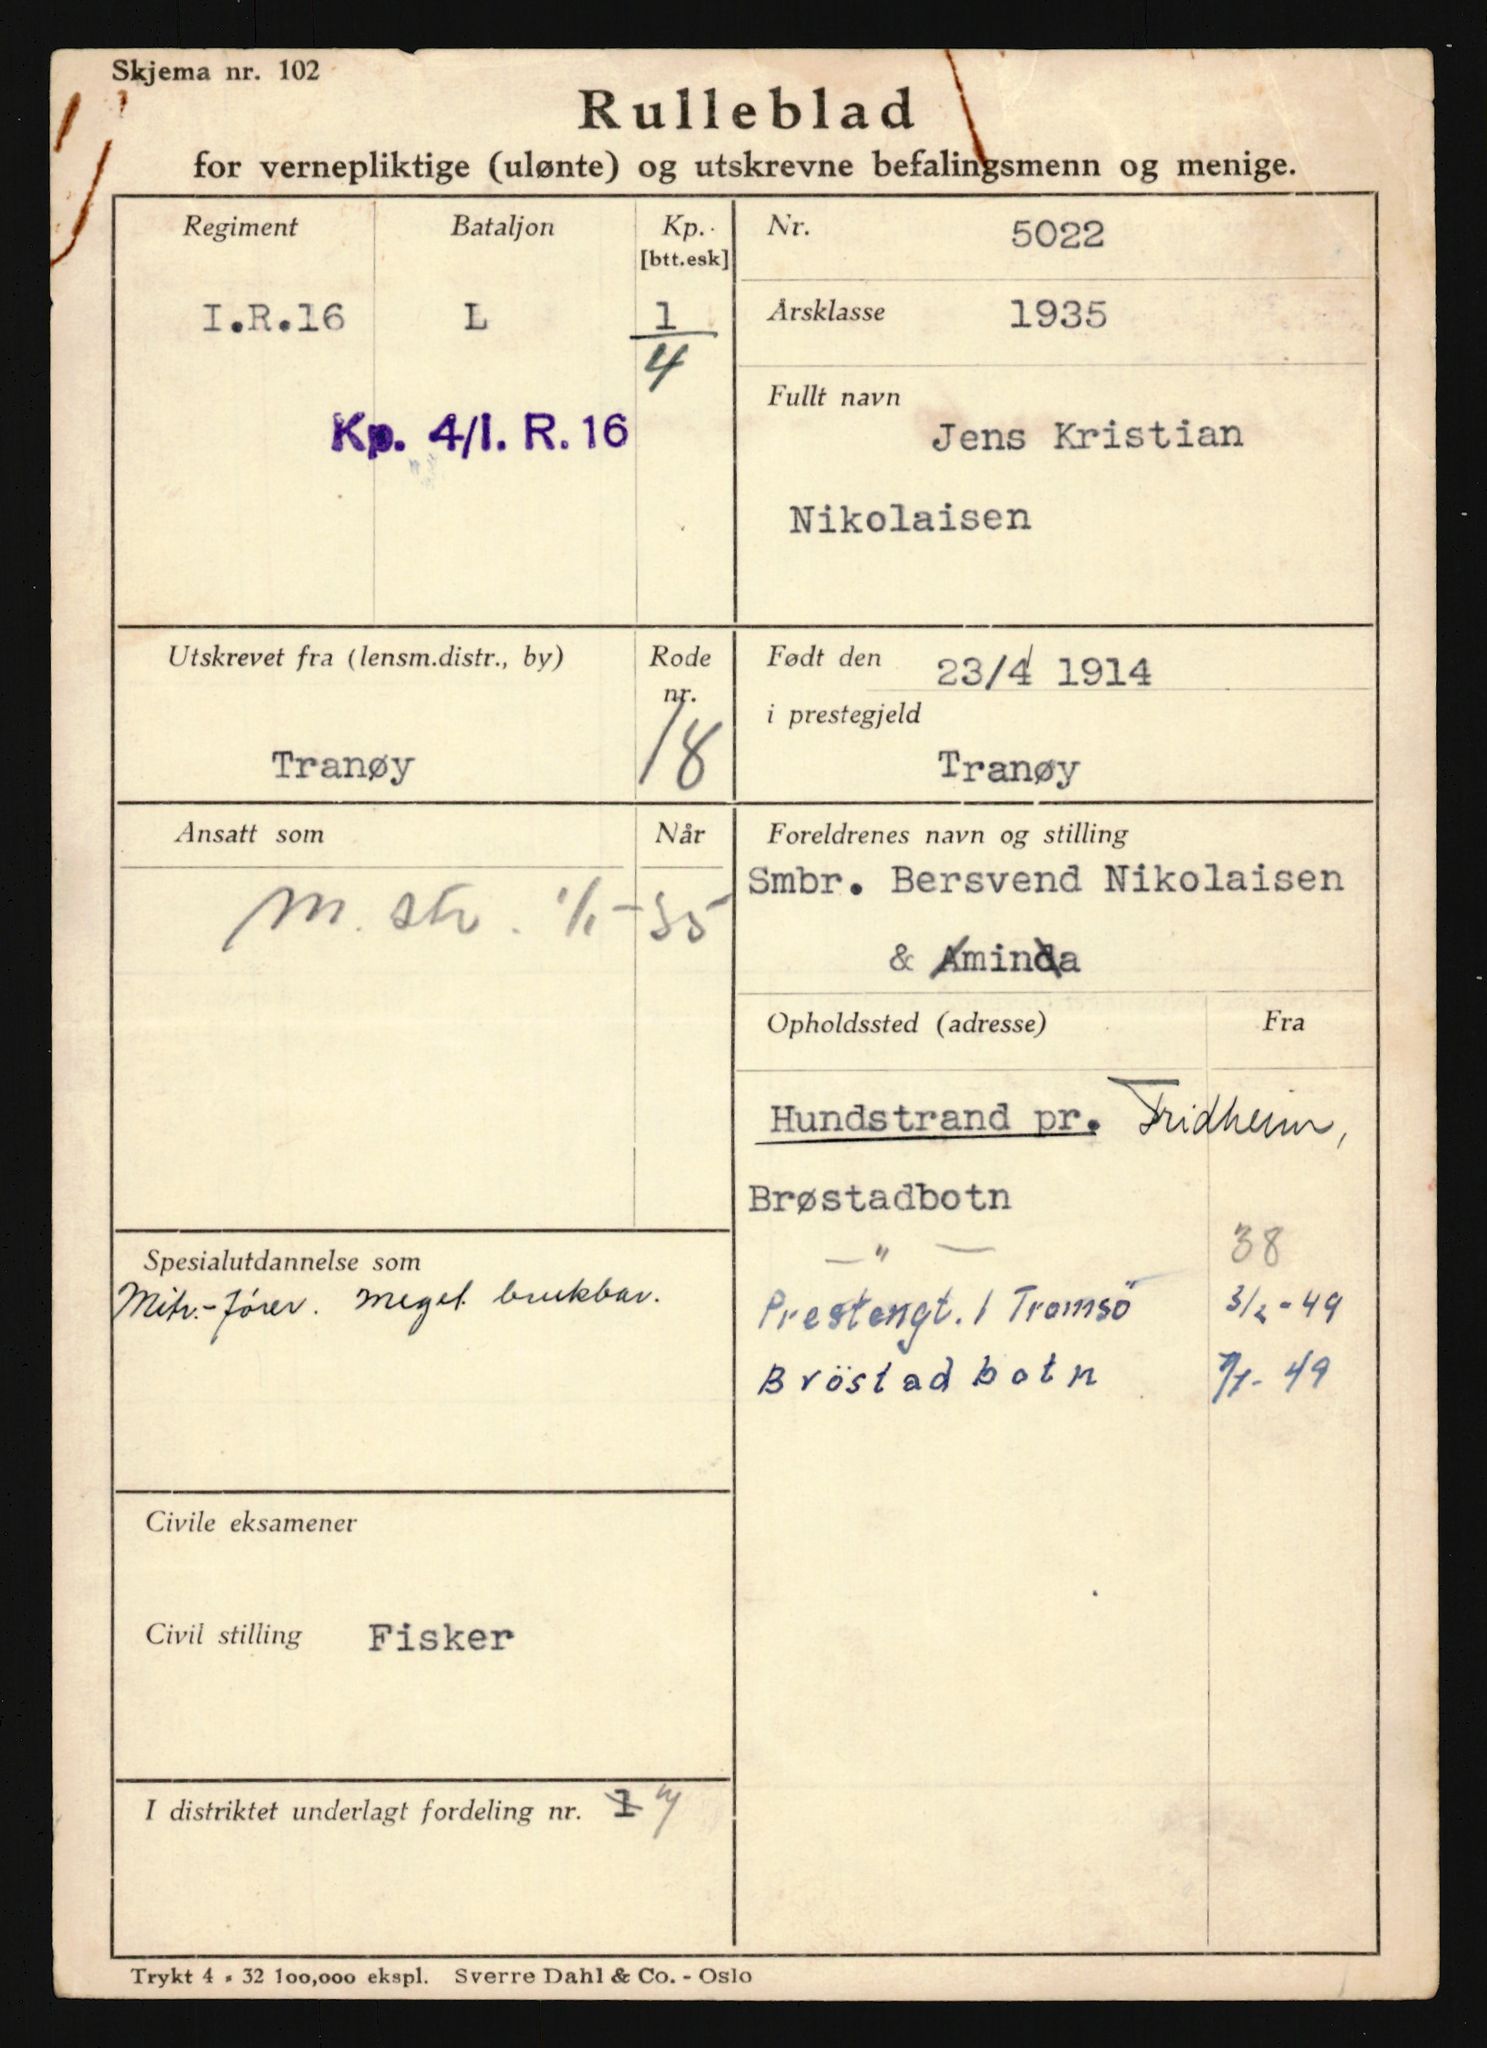 Skjema nr. 102
Rulleblad
for vernepliktige (ulønte) og utskrevne befalingsmenn og menige.
Regiment Bataljon Kp. [btt.esk]
I.R.16 L 1
4
Kp. 4/I. R. 16
Nr. 5022
Årsklasse 1935
Fullt navn
Jens Kristian
Nikolaisen
Utskrevet fra (lensm.distr., by) Rode nr.
Tranøy 18
Født den 23/4 1914
i prestegjeld
Tranøy
Ansatt som Når
M. str. 1/1-35
Foreldrenes navn og stilling
Smbr. Bersvend Nikolaisen
& Aminda
Opholdssted (adresse) Fra
Hundstrand pr. Fridheim,
Brøstadbotn
— " — 38
Prestengt. 1 Tromsö 3/2-49
Bröstadbotn 7/7-49
Spesialutdannelse som
Mitr.-fører. Meget brukbar.
Civile eksamener
Civil stilling Fisker
I distriktet underlagt fordeling nr. 1
Trykt 4 - 32 100,000 ekspl. Sverre Dahl & Co. - Oslo